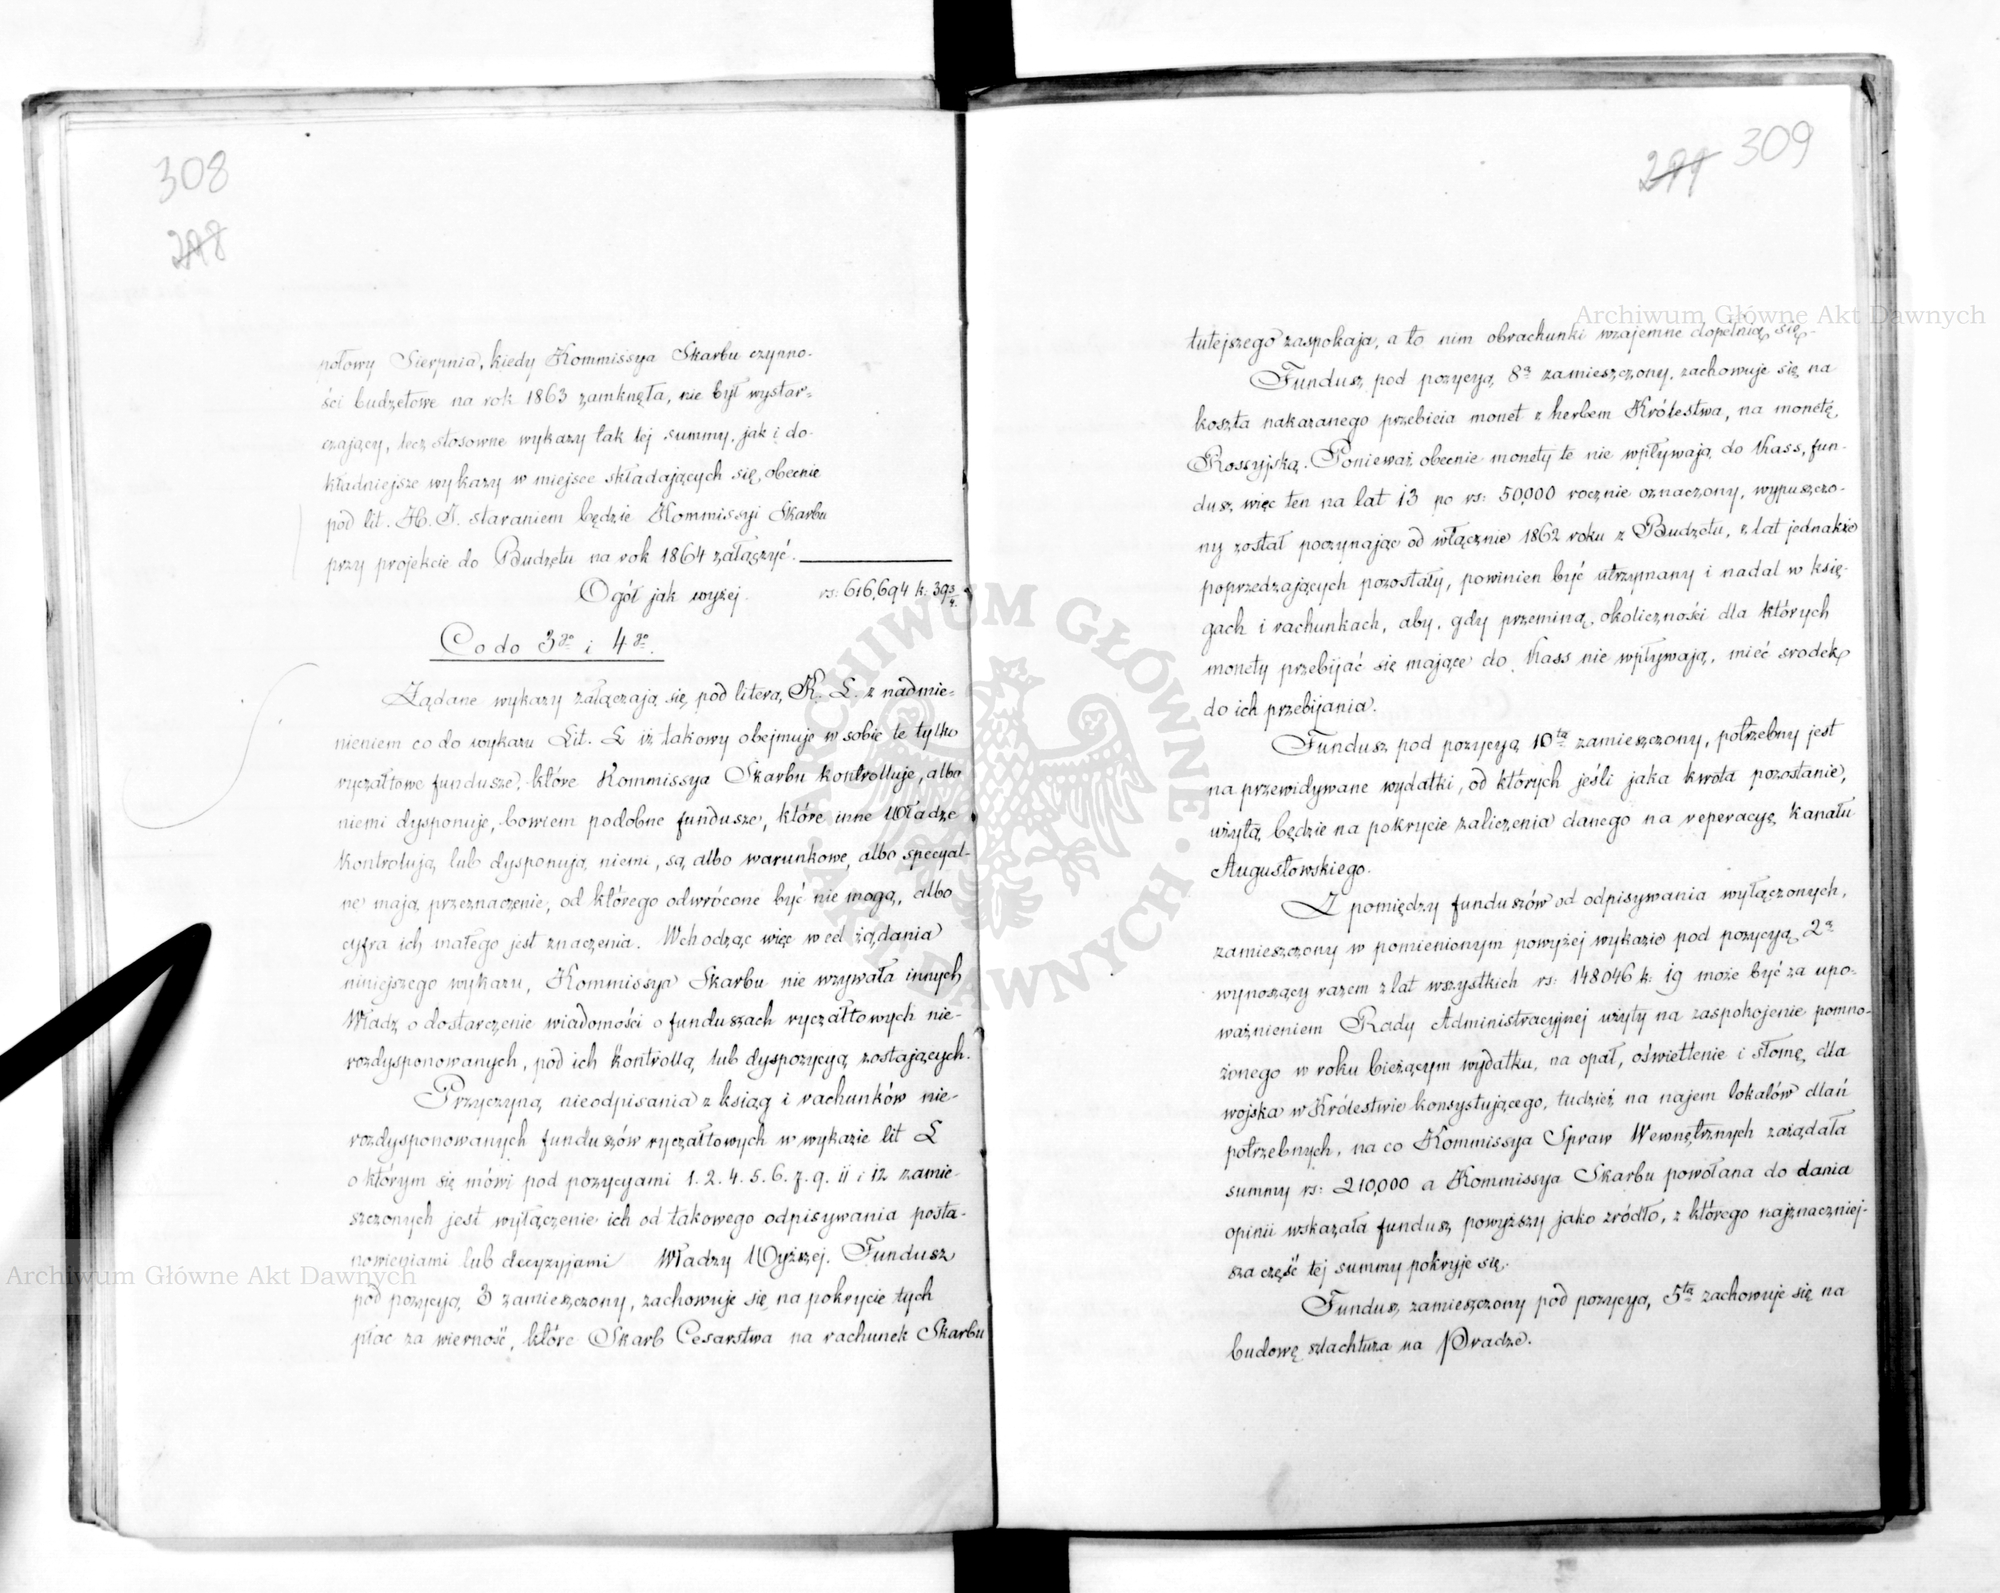 308
298
połowy Sierpnia, kiedy Kommissya Skarbu czynno-
ści budżetowe na rok 1863 zamknęła, nie był wystar-
czający, lecz stosowne wykazy tak tej summy, jak i do-
kładniejsze wykazy w miejsce składających się obecnie
pod lit. H. I. staraniem będzie Kommissyi Skarbu
przy projekcie do Budżetu na rok 1864 załączyć.
Ogół jak wyżej rs: 616,694 k: 39 3/4.
Co do 3go i 4go.
Żądane wykazy załączają się pod literą K. L. z nadmie-
nieniem co do wykazu Lit. L iż takowy obejmuje w sobie te tylko
ryczałtowe fundusze, które Kommissya Skarbu kontrolluje, albo
niemi dysponuje, bowiem podobne fundusze, które inne Władze
kontrolują lub dysponują niemi, są albo warunkowe, albo specyal-
ne mają przeznaczenie, od którego odwrócone być nie mogą, albo
cyfra ich małego jest znaczenia. Wchodząc więc w cel żądania
niniejszego wykazu, Kommissya Skarbu nie wzywała innych
Władz o dostarczenie wiadomości o funduszach ryczałtowych nie-
rozdysponowanych, pod ich kontrollą lub dyspozycyą zostających.
Przyczyną nieodpisania z ksiąg i rachunków nie-
rozdysponowanych funduszów ryczałtowych w wykazie lit L
o którym się mówi pod pozycyami 1. 2. 4. 5. 6. 7. 9. 11 i 12 zamie-
szczonych jest wyłączenie ich od takowego odpisywania posta-
nowieniami lub decyzyjami Władzy Wyższej. Fundusz
pod pozycyą 3 zamieszczony, zachowuje się na pokrycie tych
płac za wierność, które Skarb Cesarstwa na rachunek Skarbu
299 309
tutejszego zaspokaja, a to nim obrachunki wzajemne dopełnią się.
Fundusz pod pozycyą 8ą zamieszczony, zachowuje się na
koszta nakazanego przebicia monet z herbem Królestwa, na monetę
Rossyjską. Ponieważ obecnie monety te nie wpływają do Kass, fun-
dusz więc ten na lat 13 po rs: 50,000 rocznie oznaczony, wypuszczo-
ny został poczynając od włącznie 1862 roku z Budżetu, z lat jednakże
poprzedzających pozostały, powinien być utrzymany i nadal w księ-
gach i rachunkach, aby, gdy przeminą okoliczności dla których
monety przebijać się mające do Kass nie wpływają, mieć środek
do ich przebijania.
Fundusz pod pozycyą 10tą zamieszczony, potrzebny jest
na przewidywane wydatki, od których jeśli jaka kwota pozostanie,
użytą będzie na pokrycie zaliczenia danego na reperacyę kanału
Augustowskiego.
Z pomiędzy funduszów od odpisywania wyłączonych,
zamieszczony w pomienionym powyżej wykazie pod pozycyą 2ą
wynoszący razem z lat wszystkich rs: 148046 k: 19 może być za upo-
ważnieniem Rady Administracyjnej użyty na zaspokojenie pomno-
żonego w roku bieżącym wydatku, na opał, oświetlenie i słomę, dla
wojska w Królestwie konsystującego, tudzież na najem lokalów dlań
potrzebnych, na co Kommissya Spraw Wewnętrznych zażądała
summy rs: 210,000 a Kommissya Skarbu powołana do dania
opinii wskazała fundusz powyższy jako źródło, z którego najznaczniej-
sza część tej summy pokryje się.
Fundusz zamieszczony pod pozycyą 5tą zachowuje się na
budowę szlachtuza na Pradze.
Archiwum Główne Akt Dawnych
Archiwum Główne Akt Dawnych
ARCHIWUM GŁÓWNE · AKT DAWNYCH ·